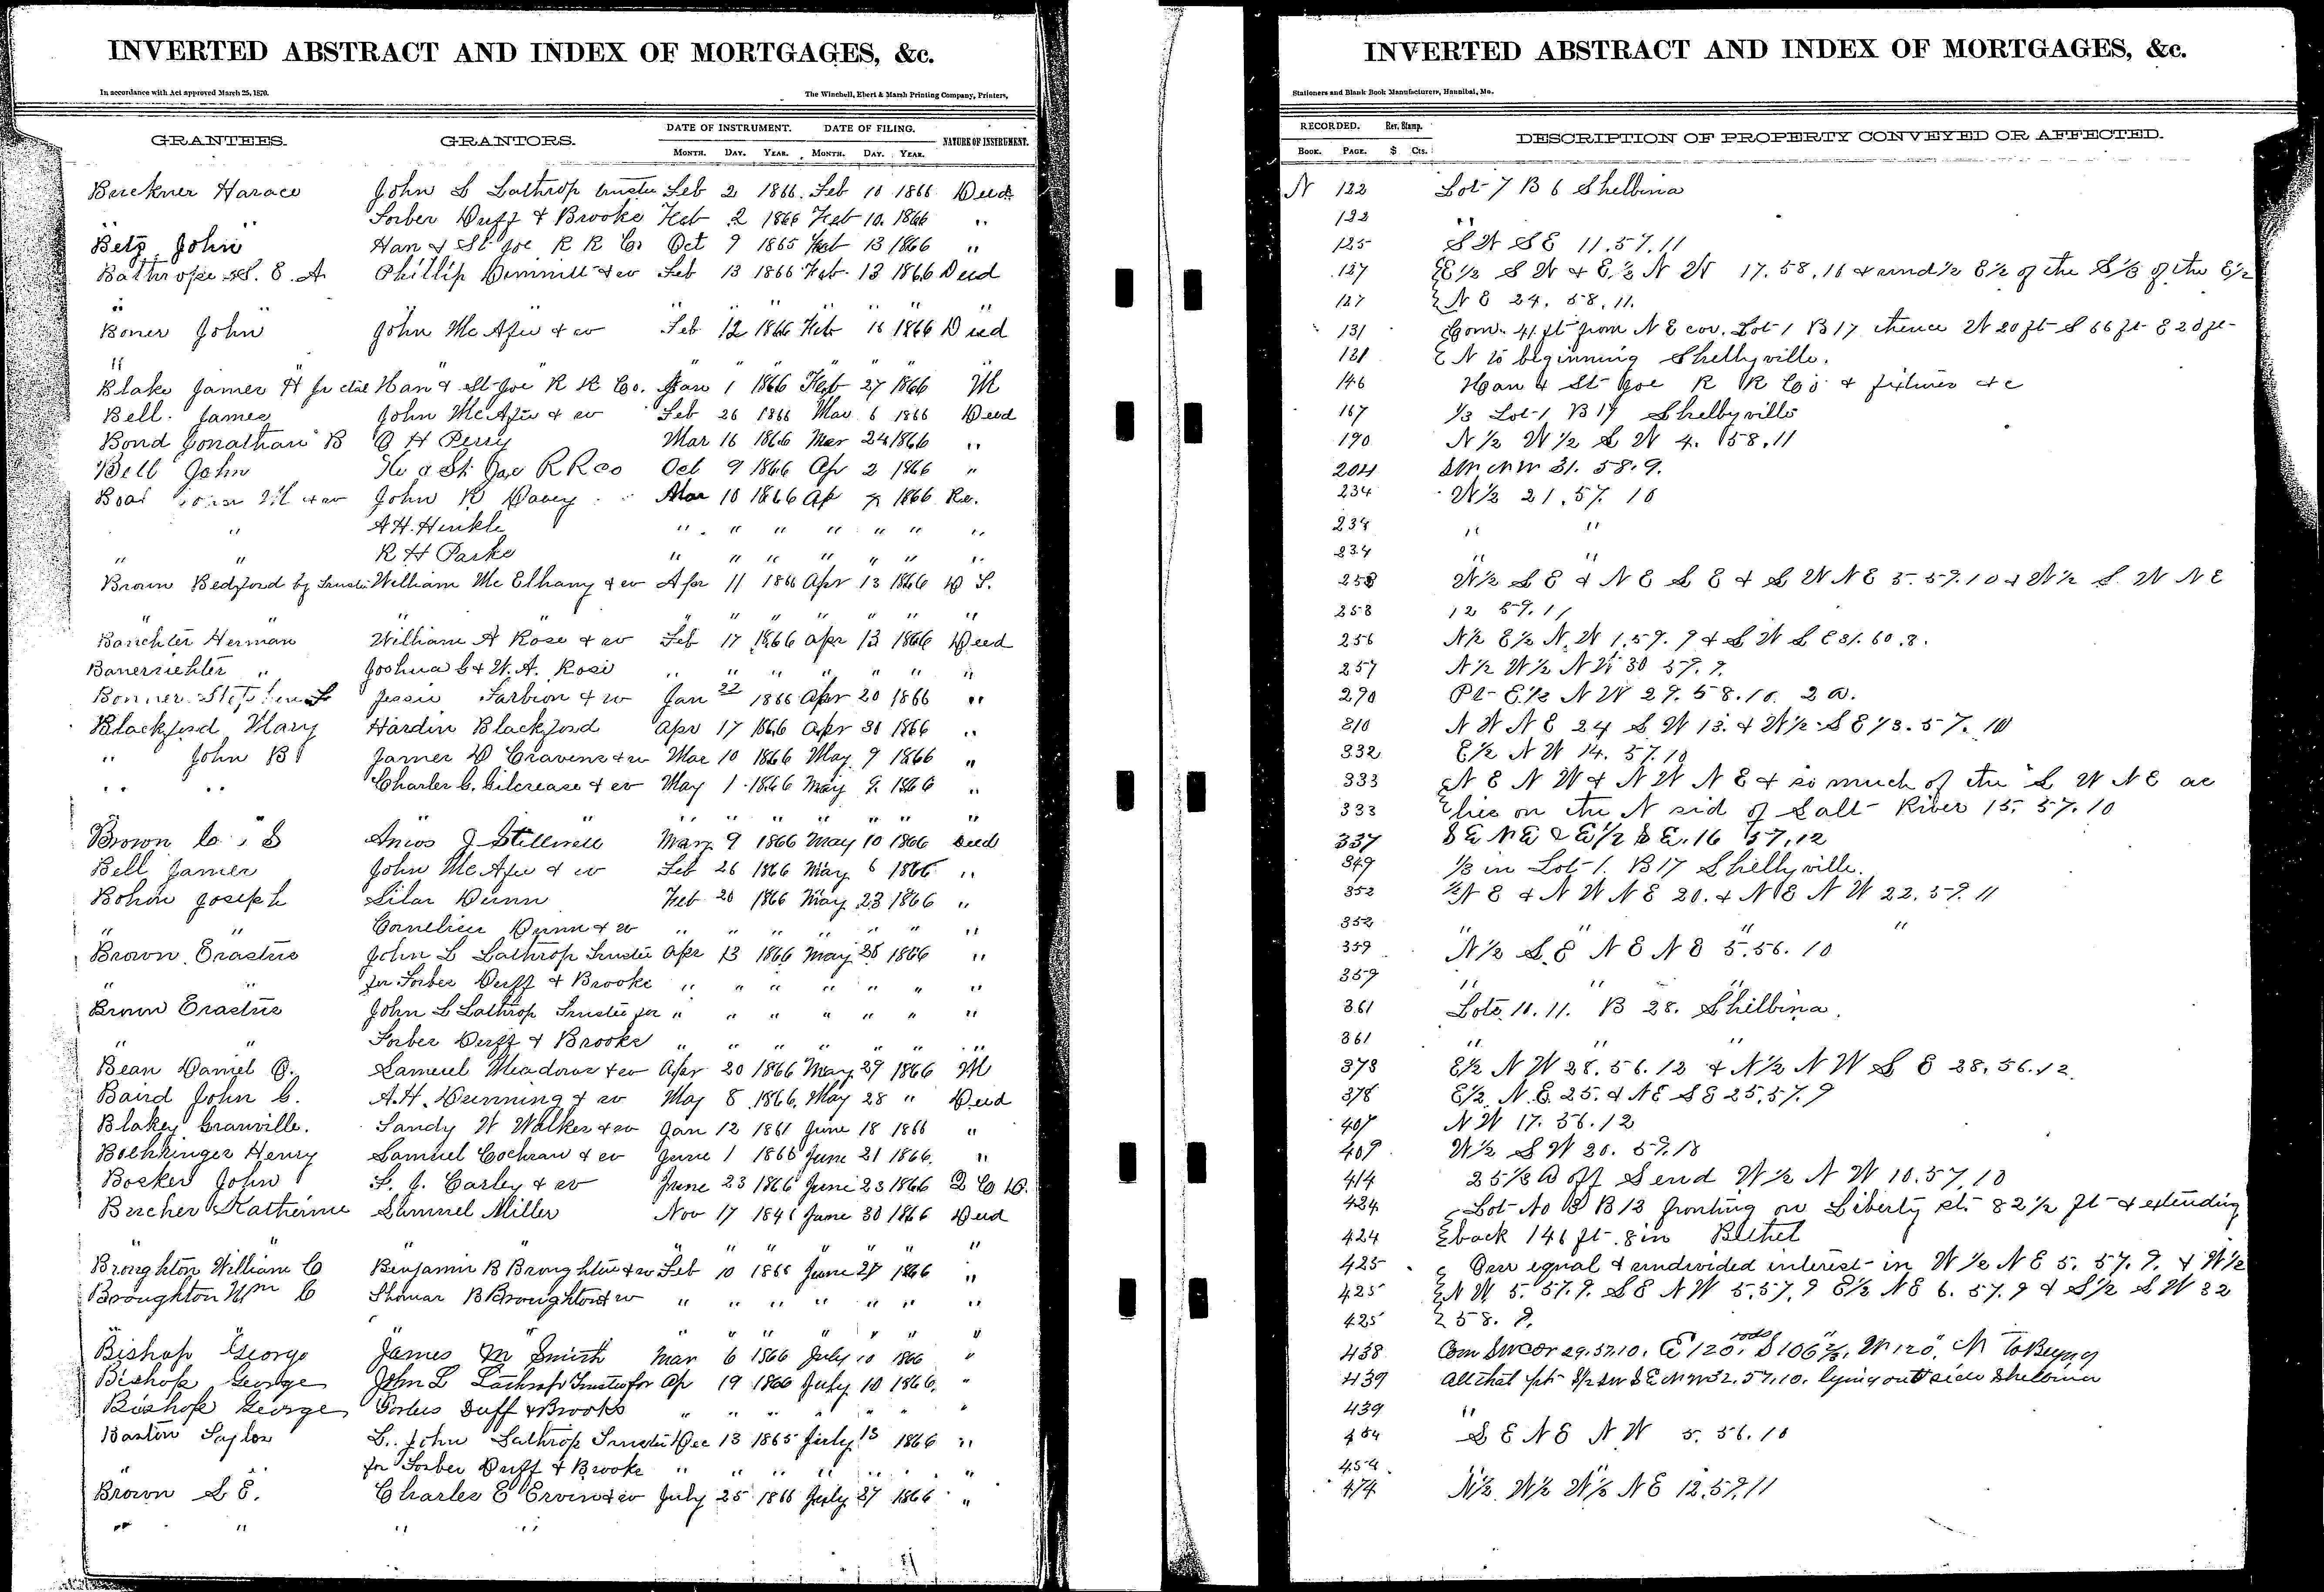 INVERTED ABSTRACT AND INDEX OF MORTGAGES, &c.
In accordance with Act approved March 25, 1870. The Winchell, Ebert & Marsh Printing Company, Printers,
GRANTEES. GRANTORS. DATE OF INSTRUMENT. DATE OF FILING. NATURE OF INSTRUMENT.
MONTH. DAY. YEAR. MONTH. DAY. YEAR.
Buckner Horace John L Lathrop trustee Feb 2 1866 Feb 10 1866 Deed
" " Forber Duff & Brooke Feb 2 1866 Feb 10 1866 "
Betz John Han & St Joe R R Co Oct 9 1865 Feb 13 1866 "
S. E. A. Phillip & w Feb 13 1866 Feb 13 1866 Deed
" " " " " " " "
Boner John John Mc Afee & w Feb 12 1866 Feb 16 1866 Deed
" " " " " " " "
Blake James H Jr etal Han & St Joe R R Co. Jan 1 1866 Feb 27 1866 M
Bell James John Mc Afee & w Feb 26 1866 Mar 6 1866 Deed
Bond Jonathan B O H Perry Mar 16 1866 Mar 24 1866 "
Bell John H & St Joe R R Co Oct 9 1866 Apr 2 1866 "
John R Davey Mar 10 1866 Ap 7 1866 Re.
" A H. Henkle " " " " " " "
" " R H Parks " " " " " " "
Brown Bedford by Trustee William Mc Elhany & w Apr 11 1866 Apr 13 1866 D T.
" " " " " " " " " " "
Banchter Herman William A Rose & w Feb 17 1866 Apr 13 1866 Deed
Banerrichter " Joshua C & W. A. Rose " " " " " " "
Bonner Stephen Jessie Farbion & w Jan 22 1866 Apr 20 1866 "
Blackford Mary Hardin Blackford Apr 17 1866 Apr 30 1866 "
" John B James D Cravens & w Mar 10 1866 May 9 1866 "
" " Charles C. Gilcrease & w May 1 1866 May 9 1866 "
" " " " " " "
Brown Amos J Stillwell Mar 9 1866 May 10 1866 Deed
Bell James John Mc Afee & w Feb 26 1866 May 6 1866 "
Bohon Joseph Silas Dunn Feb 20 1866 May 23 1866 "
" " Cornelius Dunn & w " " " " " " "
Brown Erastus John L Lathrop Trustee Apr 13 1866 May 28 1866 "
" " for Forber Duff & Brooke " " " " " " "
Brown Erastus John L Lathrop Trustee for " " " " " " "
" " Forber Duff & Brooke " " " " " " "
Bean Daniel O. Samuel Meadows & w Apr 20 1866 May 29 1866 M
Baird John C. A. H. Dunning & w May 8 1866 May 28 " Deed
Blakey Granville. Sandy W Walker & w Jan 12 1861 June 18 1866 "
Boehringer Henry Samuel Cochran & w June 1 1866 June 21 1866. "
Bosker John F. J. Carley & w June 23 1866 June 23 1866 Q C D.
Bucher Katherine Samuel Miller Nov 17 June 30 1866 Deed
" " " " " " " "
Broughton William C Benjamin B Broughton & w Feb 10 1866 June 27 1866 "
Broughton Wm C Thomas B Broughton & w " " " " " " "
" " " " " " "
Bishop George James M Smith Mar 6 1866 July 10 1866 "
Bishop George John L Lathrop Trustee for Ap 19 1866 July 10 1866. "
Bishop George Forbes Duff & Brooks " " " " " " "
Baston Taylor L. John Lathrop Trustee Dec 13 1865 July 13 1866 "
" " for Forber Duff & Brooke " " " " " " "
Brown S E. Charles E Ervin & w July 25 1866 July 27 1866 "
" " " "
INVERTED ABSTRACT AND INDEX OF MORTGAGES, &c.
Stationers and Blank Book Manufacturers, Hannibal, Mo.
RECORDED. Rev. Stamp. DESCRIPTION OF PROPERTY CONVEYED OR AFFECTED.
BOOK. PAGE. $ Cts.
N 122 Lot 7 B 6 Shelbina
122 "
125 S W S E 11.57.11
127 E½ S W & E½ N W 17.58.16 & und ½ E½ of the S⅓ of the E½
127 N E 24. 58. 11.
131 Com. 41 ft from N E cor. Lot 1 B 17 thence W 20 ft S 66 ft E 20 ft
131 N to beginning Shelbyville.
146 Han & St Joe R R Co's & fixtures etc
167 ⅓ Lot 1 B 17 Shelbyville
190 N½ W½ S W 4. 58.11
204 SW NW 31. 58. 9.
234 W½ 21.57.10
234 " "
234 " "
258 W½ S E & N E S E & S W N E 5.59.10 & W½ S W N E
258 12 59. 11
256 N½ E½ N. W 1.59.9 & S W S E 31. 60. 8.
257 N½ W½ N W 30 59. 9.
290 Pt E½ N W 29. 58. 10. 2 a.
310 N W N E 24 S W 13. & W½ S E 13. 57. 10
332 E½ N W 14. 57.10
333 N E N W & N W N E & so much of the S W N E as
333 lies on the N sid of Salt River 15. 57. 10
337 S E N E & E½ S E. 16 57.12
349 ⅓ in Lot 1. B 17 Shelbyville.
352 N E & N W N E 20. & N E N W 22. 59. 11
352 " " " "
359 N½ S. E N E N E 5. 56. 10
359 " " "
361 Lots. 10. 11. B 28. Shelbina.
361 " " "
373 E½ N W 28. 56. 12 & N½ N W S E 28. 56. 12.
378 E½ N. E. 25. & N E S E 25. 57. 9
407 N W 17. 56. 12
409 W½ S W 20. 59.10
414 25½ a off S end W½ N W 10. 57. 10
424 Lot No B 13 fronting on Liberty st. 82½ ft & extending
424 back 146 ft. 8 in Bethel
425 One equal & undivided interest in W½ N E 5. 57. 9. & W½
425 N W 5. 57. 9. S E N W 5. 57. 9 E½ N E 6. 57. 9 & S½ S W 32
425 58. 9.
438 Com SW cor 29.57.10. E 120 rods S 106⅔ " W 120 " N To Begng
439 All that pt S½ SW S E NW 32. 57. 10. lying outside Shelbina
439 "
454 S E N E N W 5. 56. 10
454 " "
474 N½ W½ W½ N E 12.59.11